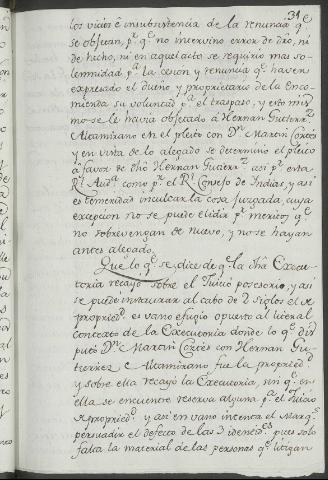 31
los vicios é insubsistencia de la renuncia q.e
se objetan, p.r q.e no intervino error de dro, ni
de hecho, ni en aquel acto se requirio mas so-
lemnidad p.a la cesion, y renuncia q.e haver
expresado el dueño y proprietario de la Enco-
mienda su voluntad p.a el traspaso, y esto mis-
mo se le havia objetado à Hernan Gutierr.z
Altamirano en el pleito con D.n Martin Cortès
y en vista de lo alegado se determinò el pleito
à favor de dho Hernan Gutierr.z asi p.r esta
R.l Aud.a como p.r el R.l Consejo de Indias, y asi
es temeridad inculcar la cosa juzgada, cuya
excepcion no se puede elidir p.r meritos q.e
no sobrevengan de nuevo, y no se hayan
antes alegado.
Que lo q.e se dice de q.e la dha Execu-
toria recayò sobre el Juicio posesorio, y asi
se puede instaurar al cabo de 2 siglos el de
propried.d es vano efugio opuesto al literal
contexto de la Executoria donde lo q.e dis-
putò D.n Martin Cortès con Hernan Gu-
tierrez e Altamirano fue la propried.d
y sobre ella recayò la Executoria, sin q.e en
ella se encuentre reserva alguna p.a el Juicio
de propried.d y asi en vano intenta el Marq.s
persuadir el defecto de las 3 identid.es pues solo
falta la material de las personas q.e litigan